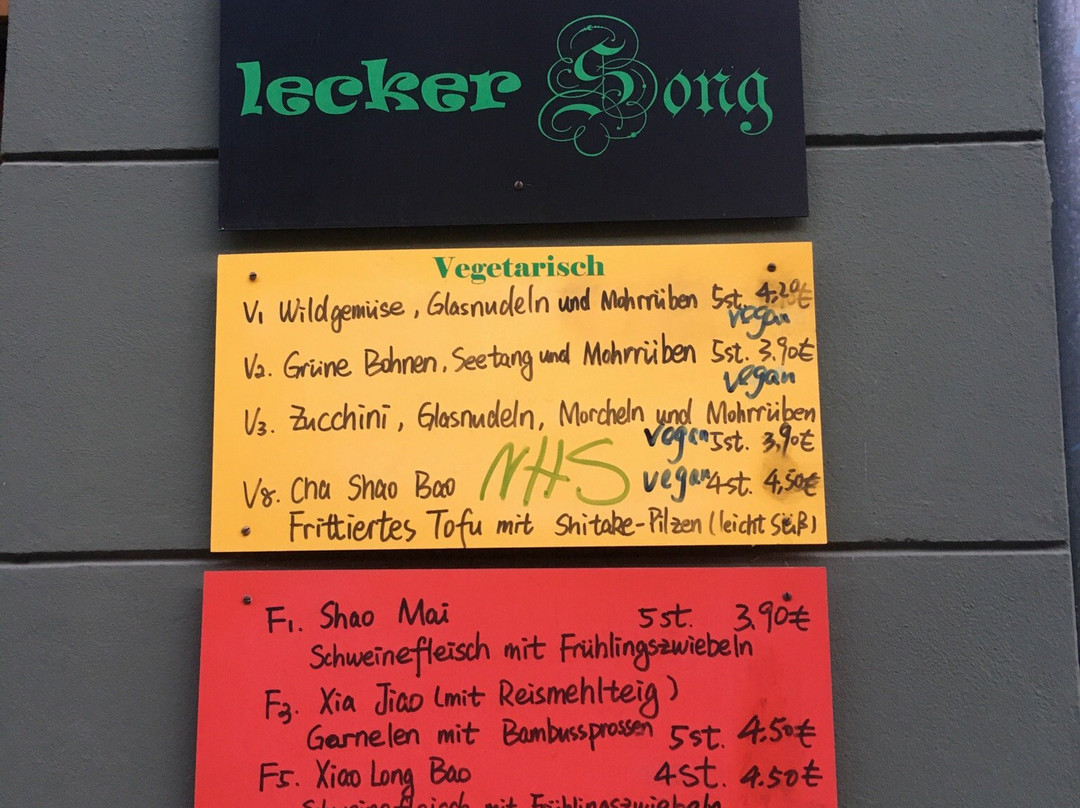 lecker Song
Vegetarisch
V1 Wildgemüse, Glasnudeln und Mohrrüben 5st. 4,20€
vegan
V2. Grüne Bohnen, Seetang und Mohrrüben 5st. 3.90€
vegan
V3. Zucchini, Glasnudeln, Morcheln und Mohrrüben
vegan 5st. 3,90€
V8. Cha Shao Bao NHS vegan 4st. 4,50€
Frittiertes Tofu mit Shitake-Pilzen (leicht Süß)
F1. Shao Mai 5st. 3.90€
Schweinefleisch mit Frühlingszwiebeln
F3. Xia Jiao (mit Reismehlteig)
Garnelen mit Bambussprossen 5st. 4.50€
F5. Xiao Long Bao 4st. 4.50€
Schweinefleisch mit Frühlingszwiebeln